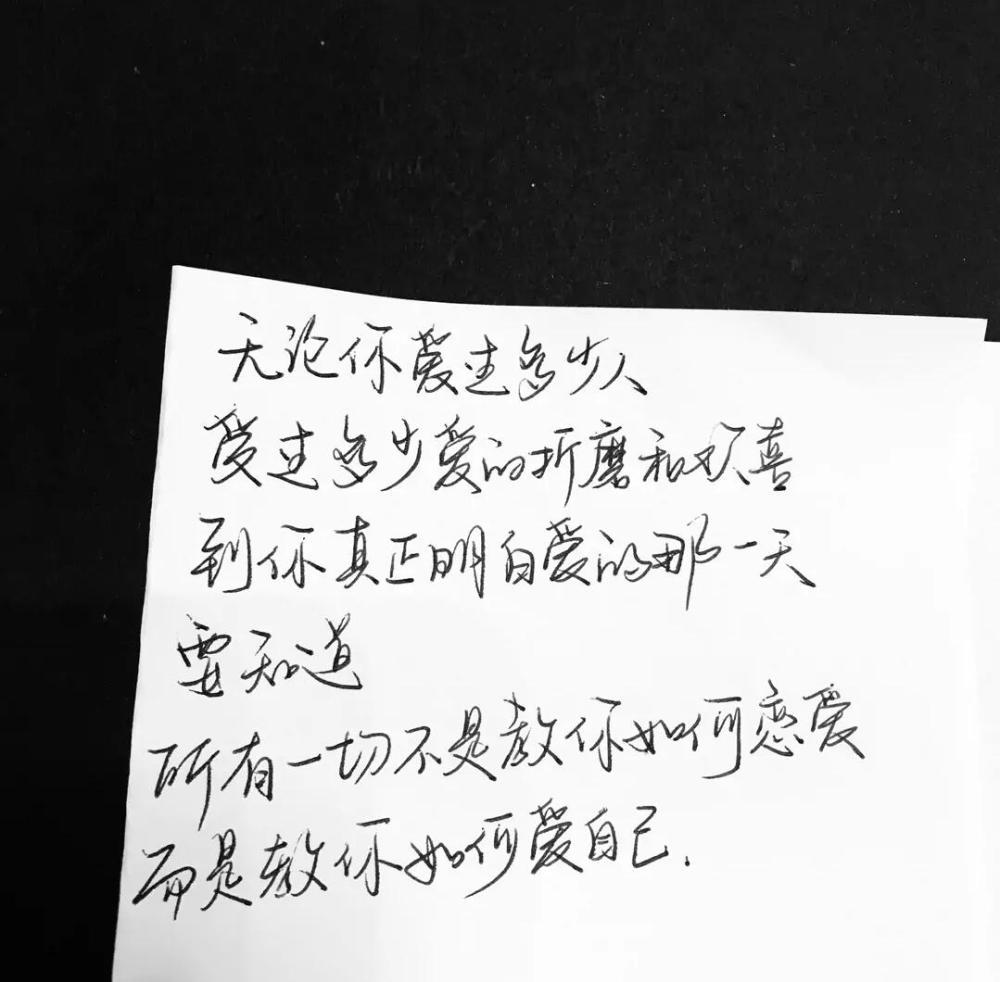 无论你爱过多少人
受过多少爱的折磨和欢喜
到你真正明白爱的那一天
要知道
所有一切不是教你如何恋爱
而是教你如何爱自己.